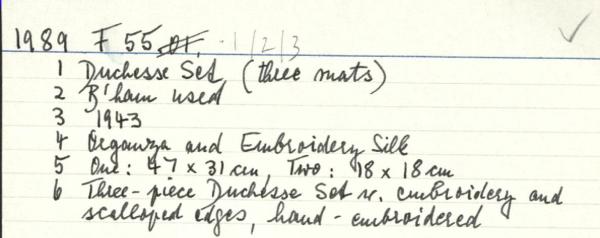 1989 F 55 ·1/2/3 ✓
1 Duchesse Set (three mats)
2 B'ham used
3 1943
4 Organza and Embroidery Silk
5 One: 47 x 31 cm, Two: 18 x 18 cm
6 Three-piece Duchesse Set w. embroidery and
scalloped edges, hand-embroidered